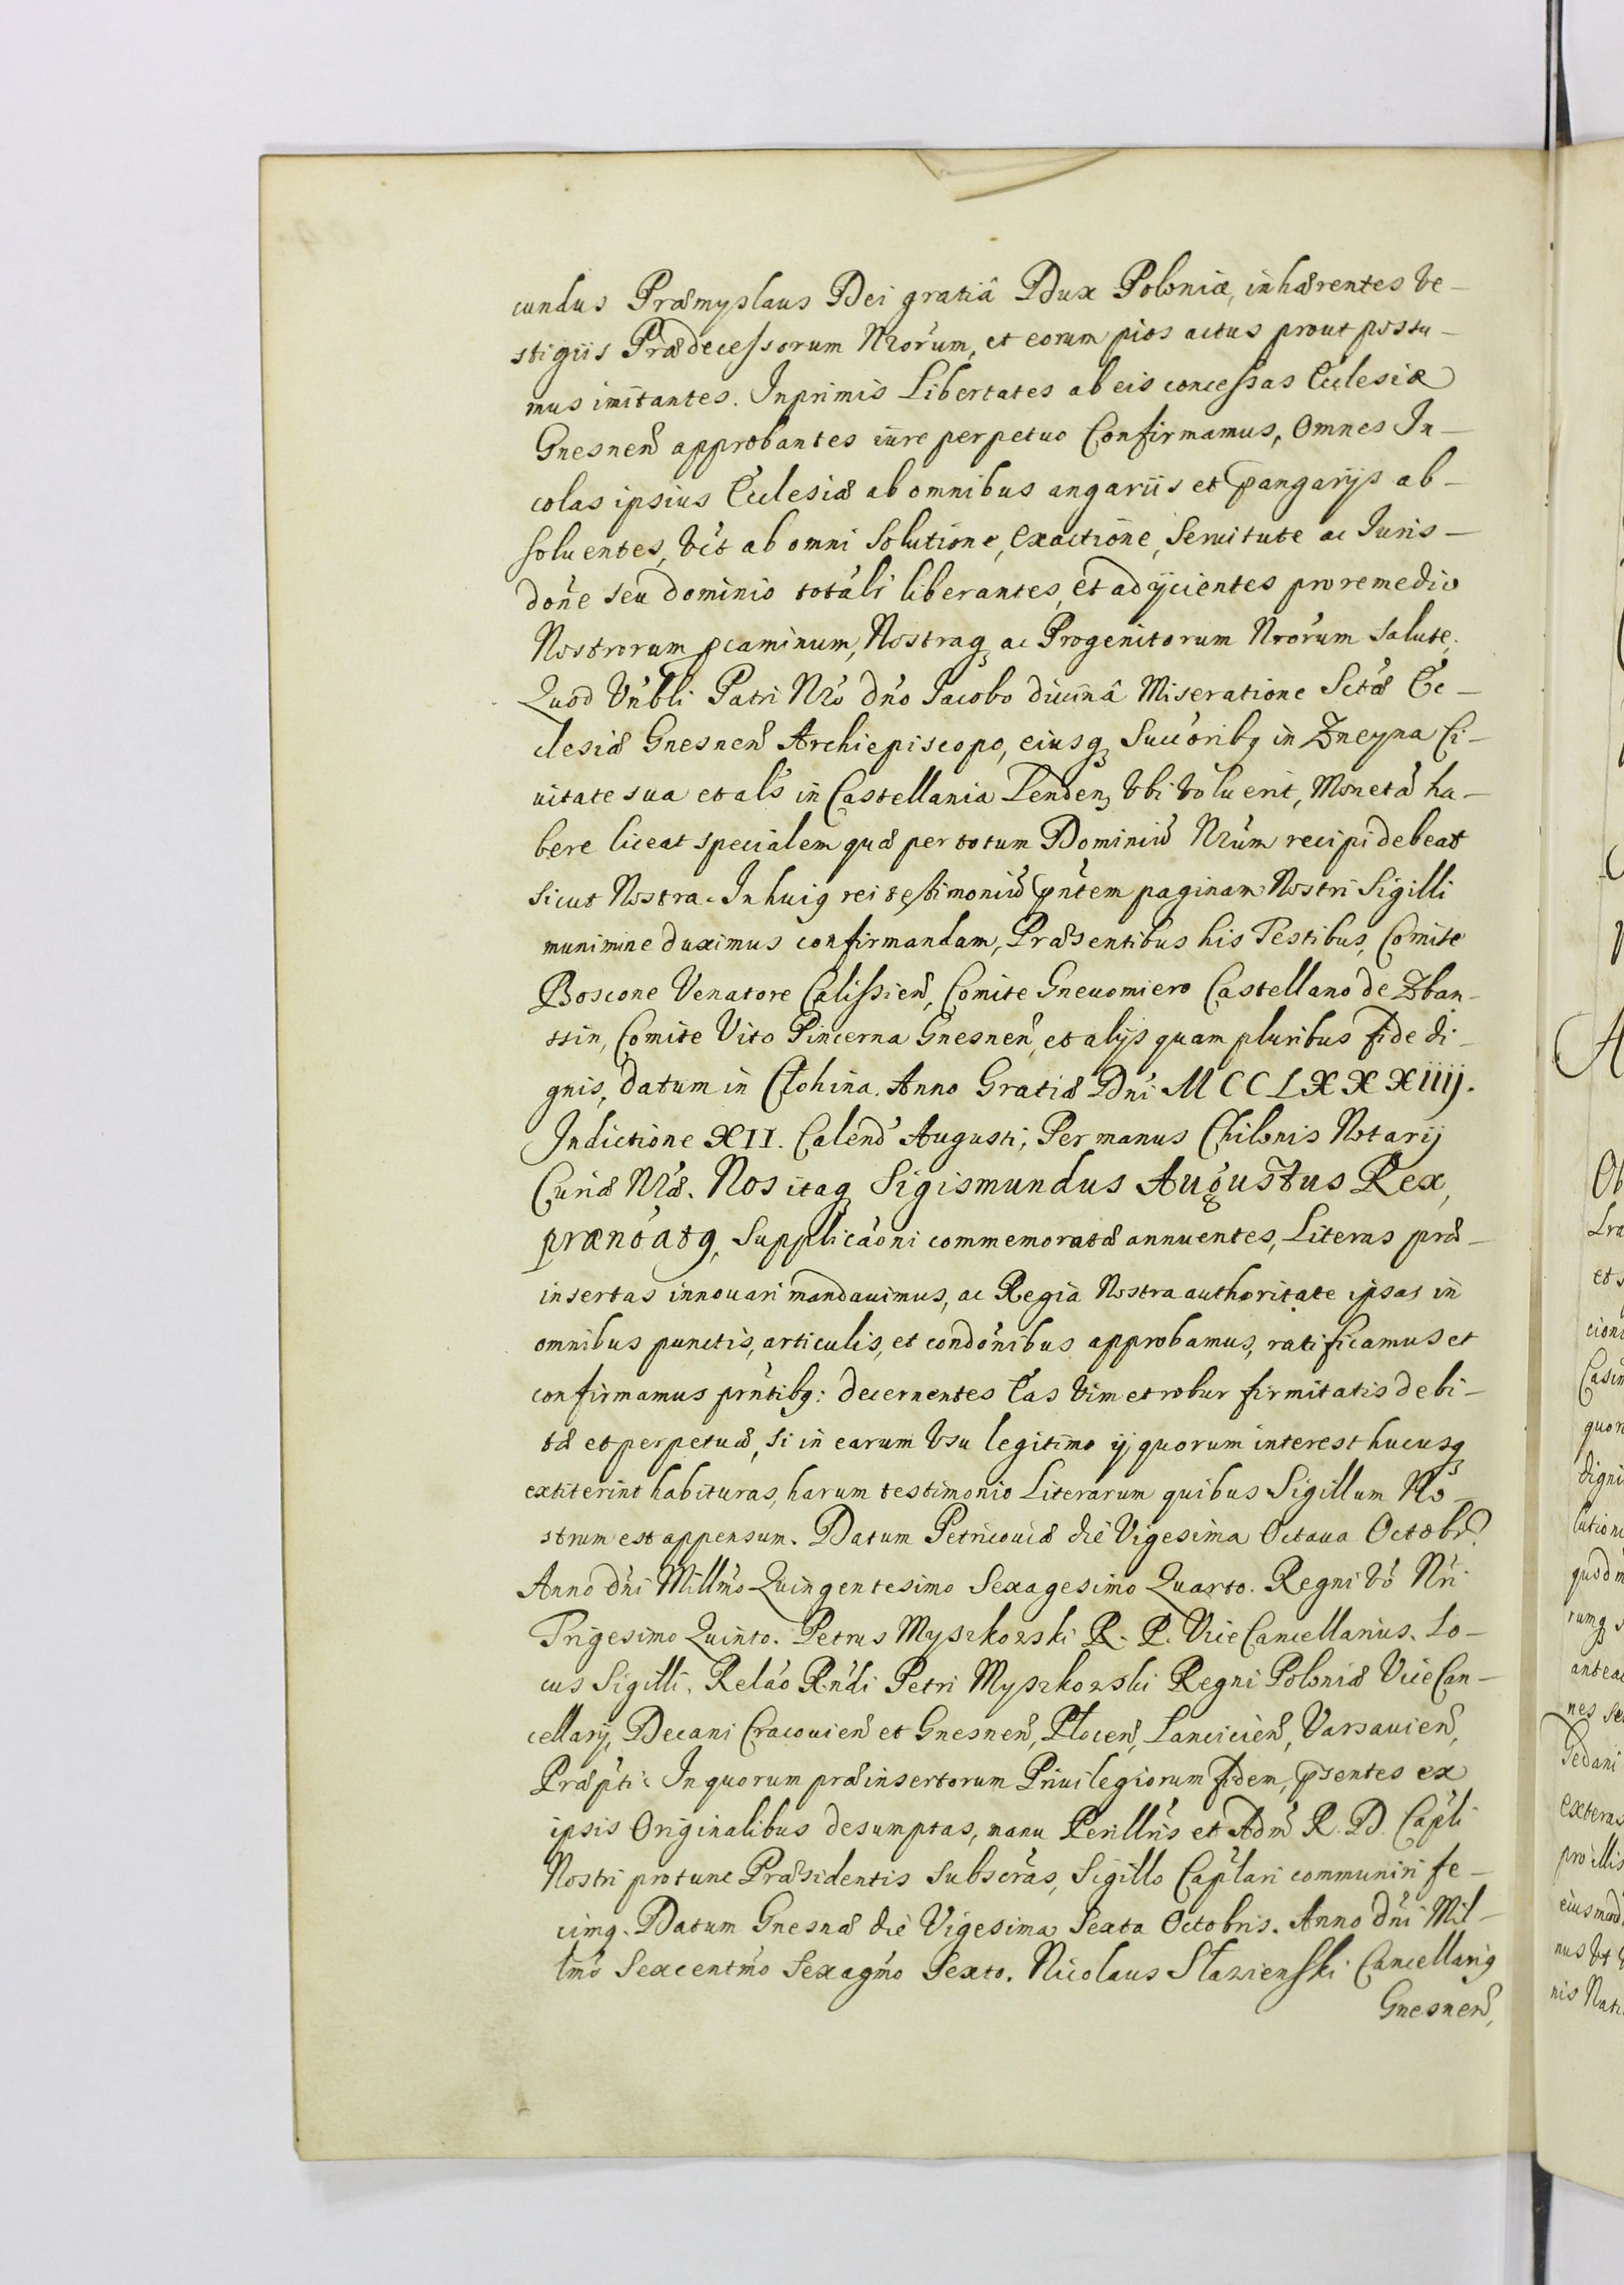 cundus Præmyslaus Dei gratiâ Dux Poloniæ, inhærentes ve-
stigiis Prædecessorum Nrorum, et eorum pios actus prout possu-
mus imitantes. Inprimis Libertates ab eis concessas Ecclesiæ
Gnesnen approbantes iure perpetuo Confirmamus, Omnes In-
colas ipsius Ecclesiæ ab omnibus angariis et pangarijs ab-
soluentes, vct ab omni Solutione, Exactione, Seruitute ac Juris-
done seu dominio totali liberantes, et adijcientes pro remedio
Nostrorum pcaminum, Nostraq ac Progenitorum Nrorum Salute.
Quod Vnbli Patri Nro dno Jacobo diuinâ Miseratione Sctæ Ec-
clesiæ Gnesnen Archiepiscopo, eiusq Succorib9 in Zneyna Ci-
uitate sua et als in Castellania Lenden, vbi voluerit, Moneta ha-
bere liceat specialem quæ per totum Dominiu Nrum recipi debeat
Sicut Nostra. In hui9 rei testimoniu pntem paginam Nostri Sigilli
munimine duximus confirmandam, Præsentibus his Testibus, Comite
Boscone Venatore Calissien, Comite Gneuomiero Castellano de Zban-
ssin, Comite Vito Pincerna Gnesnen, et alijs quam pluribus fide di-
gnis, datum in Clohina. Anno Gratiæ Dni MCCLXXXIIIJ.
Indictione XII. Calend Augusti; Per manus Chilonis Notarij
Curiæ Nræ. Nos itaq Sigismundus Augustus Rex,
prænotat9, Supplicaoni commemoratæ annuentes, Literas præ-
insertas innouari mandauimus, ac Regia Nostra authoritate ipsas in
omnibus punctis, articulis, et condonibus approbamus, ratificamus et
confirmamus prntib9: decernentes Eas vim et robur firmitatis debi-
tæ et perpetuæ, si in earum vsu legitimo ij quorum interest hucusq
extiterint habituras, harum testimonio Literarum quibus Sigillum No-
strum est appensum. Datum Petricouiæ die Vigesima Octaua Octobr.
Anno dni Millmo Quingentesimo Sexagesimo Quarto. Regni vo Nri
Trigesimo Quinto. Petrus Myszkowski R. P. Vice Cancellarius. Lo-
cus Sigilli. Relao R.ndi Petri Myszkowski Regni Poloniæ Vice Can-
cellarij, Decani Cracouien et Gnesnen, Plocen, Lancicien, Varsauien,
Præpti: In quorum præinsertorum Priuilegiorum fidem, psentes ex
ipsis Originalibus desumptas, manu Perillris et Adm R. D. Capli
Nostri protunc Præsidentis subscras, Sigillo Caplari communiri fe-
cim9. Datum Gnesnæ die Vigesima Sexta Octobris. Anno dni Mil-
lmo Sexcentmo Sexagmo Sexto. Nicolaus Stawienski Cancellari9
Gnesnen,